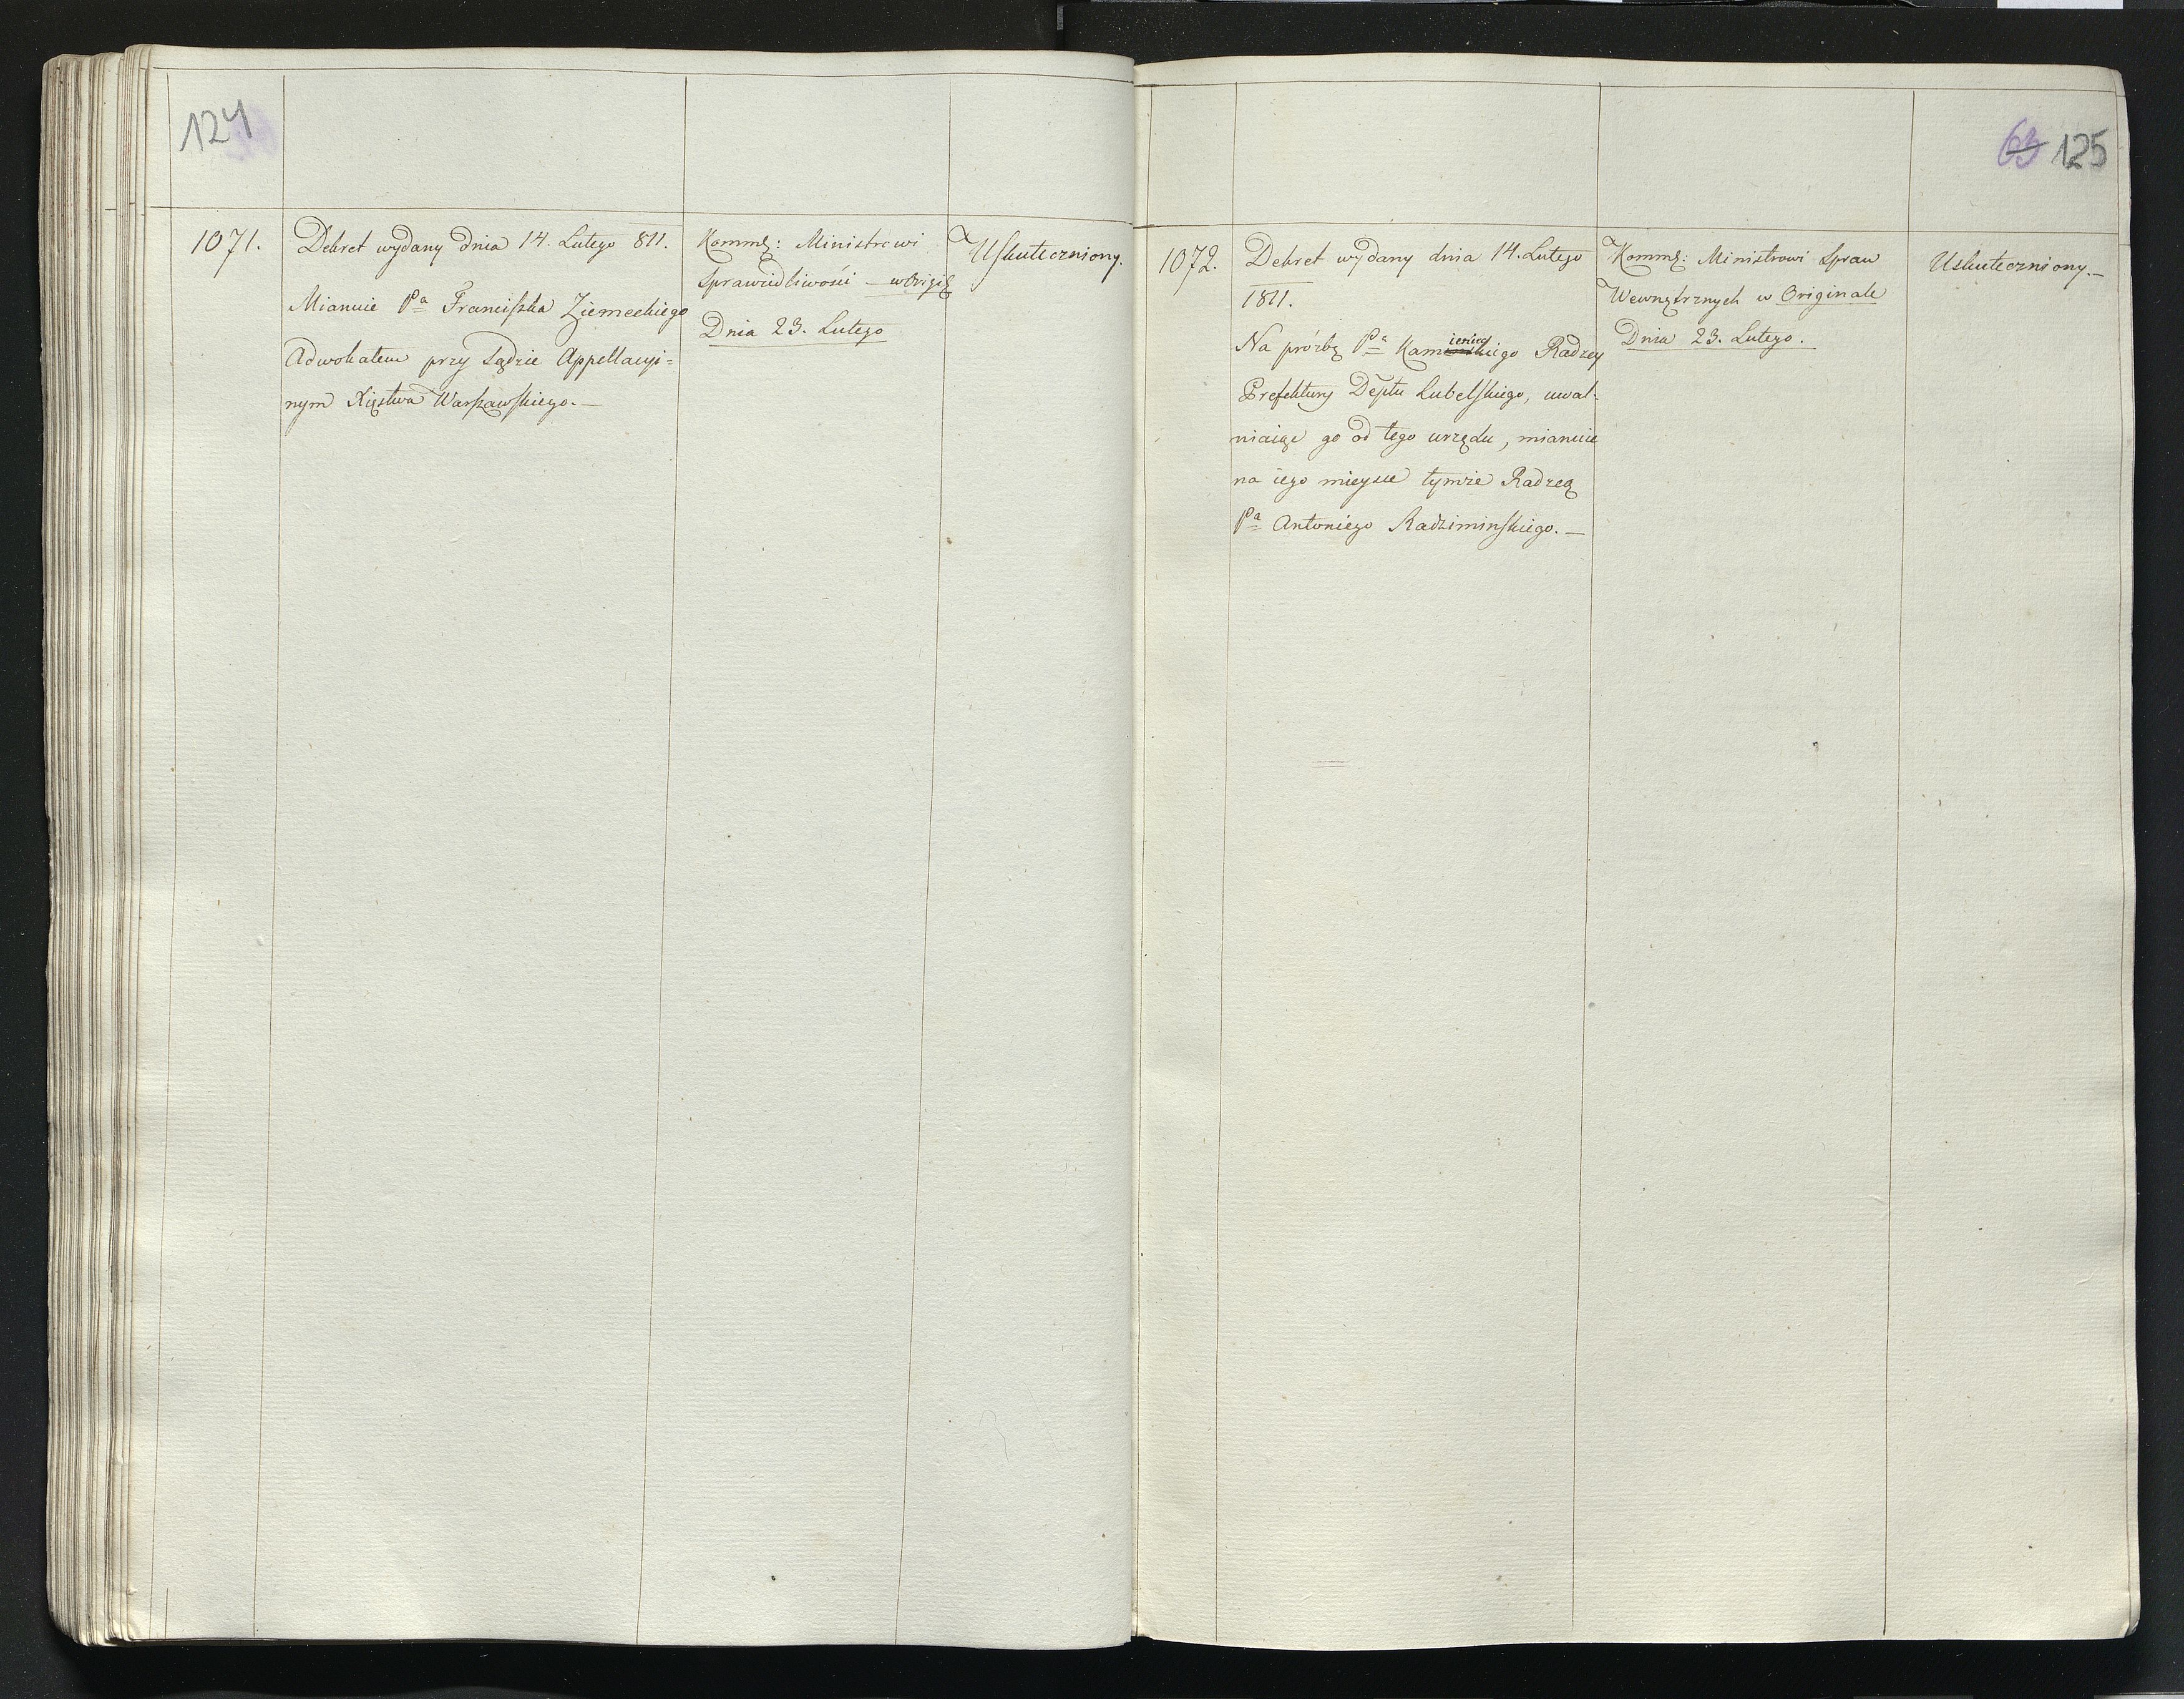 124
1071.
Dekret wydany dnia 14. Lutego 811.
Mianuie Pa Franciszka Ziemeckiego
Adwokatem przy Sądzie Appellacyi=
nym Xięstwa Warszawskiego.—
Kommę: Ministrowi
Sprawiedliwości – w Origlę
Dnia 23. Lutego
Uskuteczniony.
63 125
1072.
Dekret wydany dnia 14. Lutego
1811.
Na prózbę Pa Kamienieckiego Radzcy
Prefektury Deptu Lubelskiego, uwal-
niaiąc go od tego urzędu, mianuie
na iego mieysce tymże Radzcą
Pa Antoniego Radziminskiego.—
Kommę: Ministrowi Spraw
Wewnętrznych w Originale
Dnia 23. Lutego.
Uskuteczniony.—